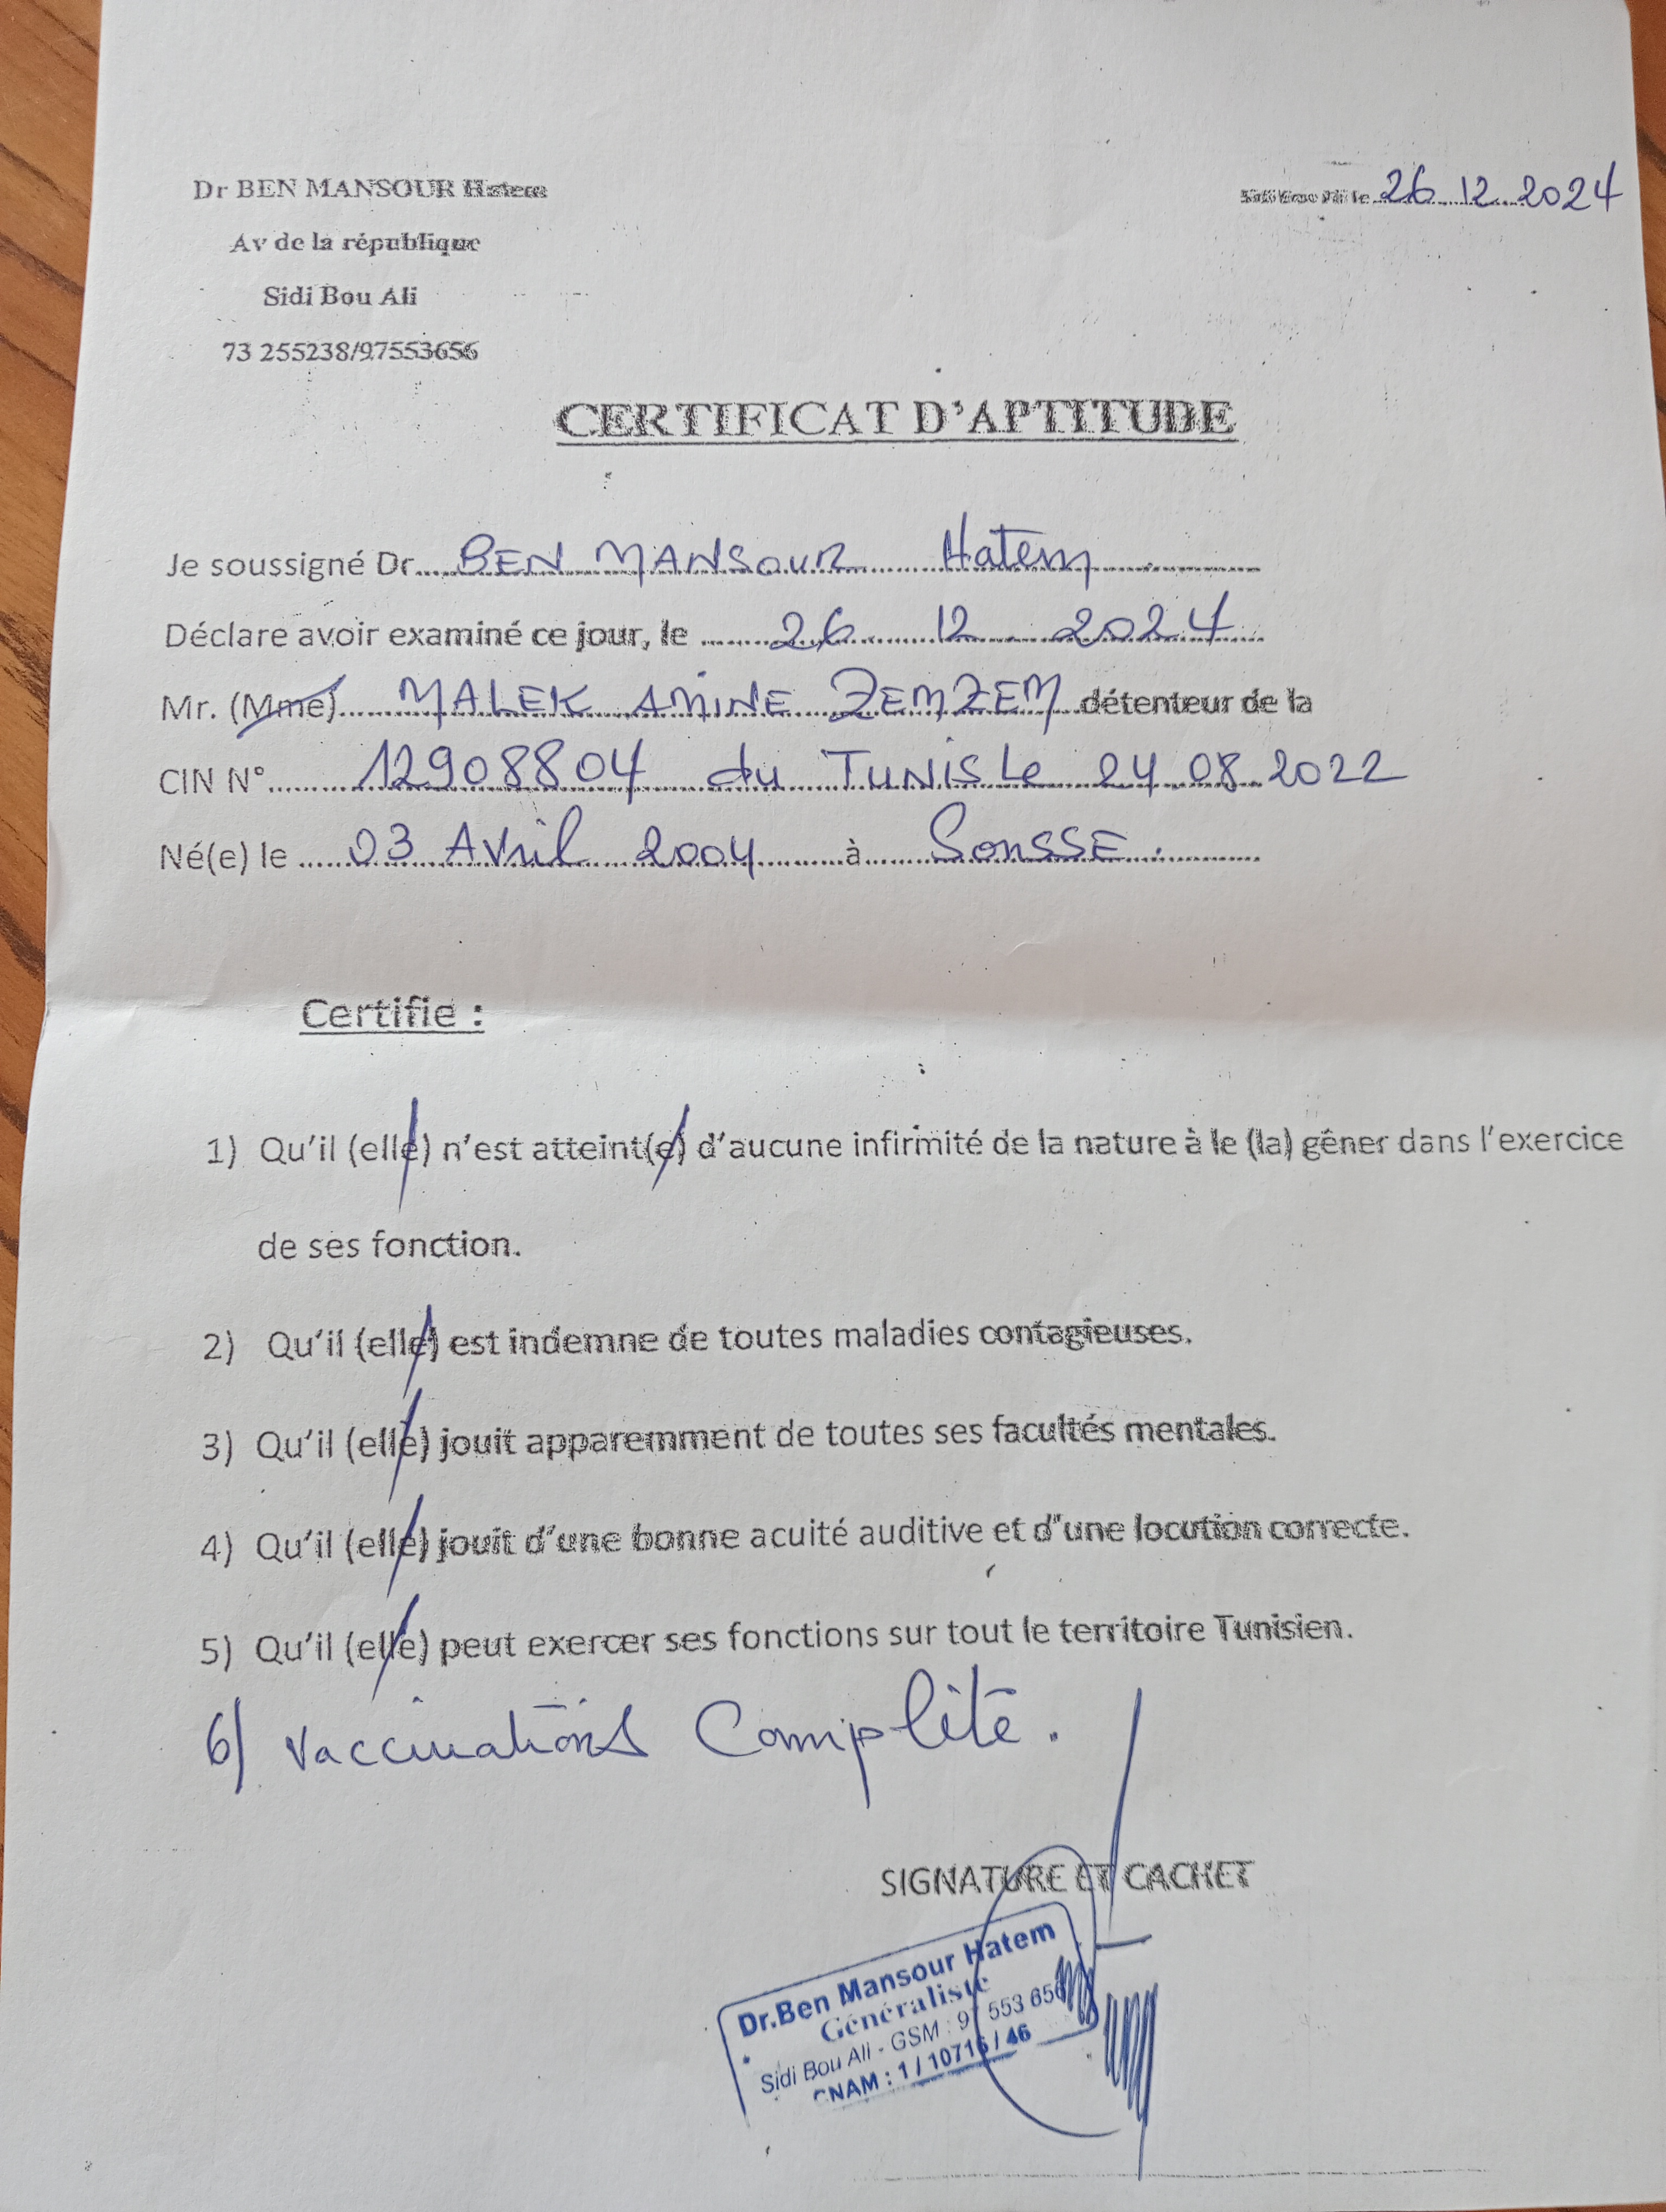 Dr BEN MANSOUR Hatem
Av de la république
Sidi Bou Ali
73 255238/97553656
Sidi Bou Ali le 26.12.2024
CERTIFICAT D'APTITUDE
Je soussigné Dr BEN MANSOUR Hatem
Déclare avoir examiné ce jour, le 26.12.2024
Mr. (Mme) MALEK AMINE ZEMZEM détenteur de la
CIN N° 12908804 du TUNIS le 24.08.2022
Né(e) le 03 Avril 2004 à SousSE.
Certifie :
1) Qu'il (elle) n'est atteint(e) d'aucune infirmité de la nature à le (la) gêner dans l'exercice
de ses fonction.
2) Qu'il (elle) est indemne de toutes maladies contagieuses.
3) Qu'il (elle) jouit apparemment de toutes ses facultés mentales.
4) Qu'il (elle) jouit d'une bonne acuité auditive et d'une locution correcte.
5) Qu'il (elle) peut exercer ses fonctions sur tout le territoire Tunisien.
6) Vaccinations Complité.
SIGNATURE ET CACHET
Dr.Ben Mansour Hatem
Généraliste
Sidi Bou Ali - GSM : 97 553 656
CNAM : 1 / 10716 / 46